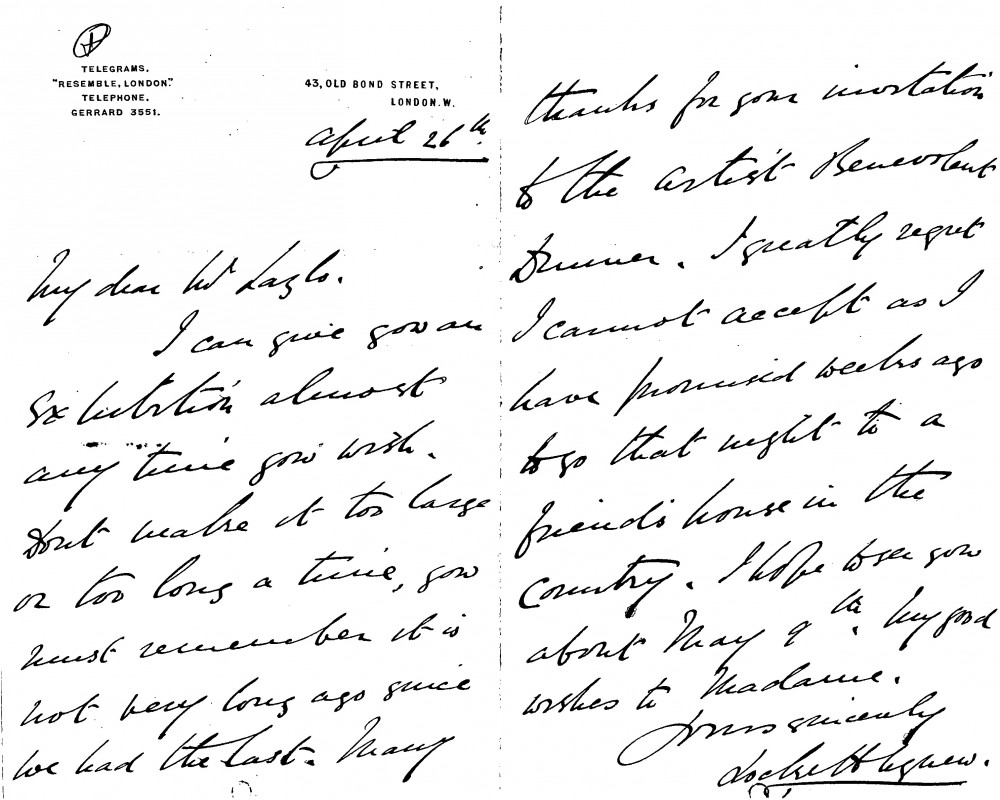 TELEGRAMS.
"RESEMBLE, LONDON."
TELEPHONE.
GERRARD 3551.
43, OLD BOND STREET,
LONDON. W.
April 26th.
My dear Mr Lazlo.
I can give you an
Exhibition almost
any time you wish.
Dont make it too large
or too long a time, you
must remember it is
not very long ago since
we had the last. Many
thanks for your invitation
to the Artist Benevolent
Dinner. I greatly regret
I cannot accept as I
have promised weeks ago
to go that night to a
friend's house in the
Country. I hope to see you
about May 9th. My good
wishes to Madame.
Yours sincerely
Lockett Agnew.